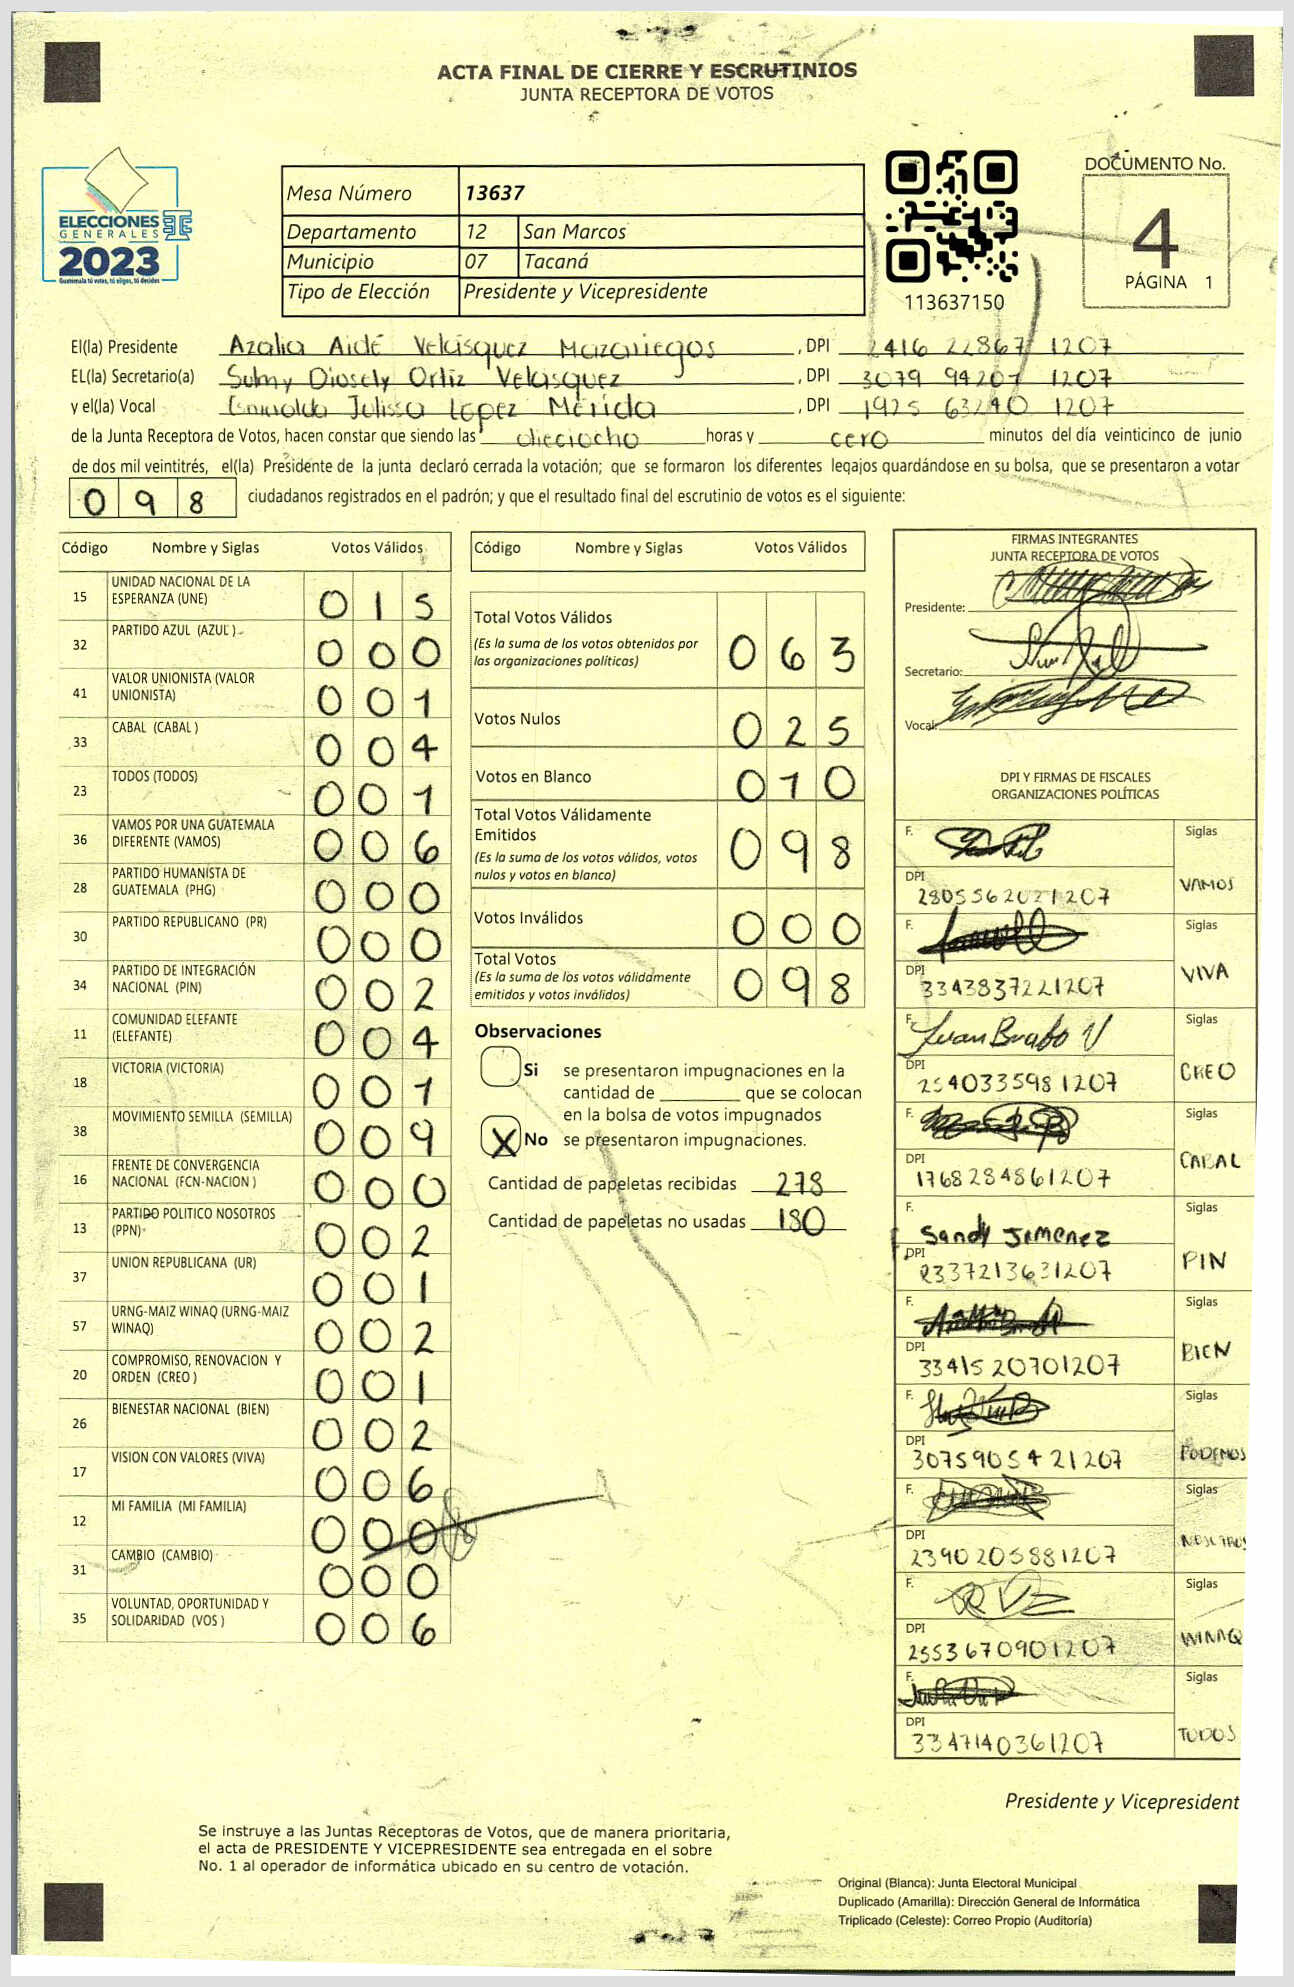 ACTA FINAL DE CIERRE Y ESCRUTINIOS
JUNTA RECEPTORA DE VOTOS
ELECCIONES
GENERALES
2023
Guatemala tú votas, tú eliges, tú decides
Mesa Número 13637
Departamento 12 San Marcos
Municipio 07 Tacaná
Tipo de Elección Presidente y Vicepresidente
113637150
DOCUMENTO No.
4
PÁGINA 1
El(la) Presidente Azalia Aidé Velásquez Mazariegos, DPI 2416 22867 1207
EL(la) Secretario(a) Sulmy Diosely Ortiz Velásquez, DPI 3079 94207 1207
y el(la) Vocal Julissa López Mérida, DPI 1925 63240 1207
de la Junta Receptora de Votos, hacen constar que siendo las dieciocho horas y cero minutos del día veinticinco de junio
de dos mil veintitrés, el(la) Presidente de la junta declaró cerrada la votación; que se formaron los diferentes legajos guardándose en su bolsa, que se presentaron a votar
098 ciudadanos registrados en el padrón; y que el resultado final del escrutinio de votos es el siguiente:
Código Nombre y Siglas Votos Válidos
15 UNIDAD NACIONAL DE LA
ESPERANZA (UNE) 015
32 PARTIDO AZUL (AZUL) 000
41 VALOR UNIONISTA (VALOR
UNIONISTA) 001
33 CABAL (CABAL) 004
23 TODOS (TODOS) 001
36 VAMOS POR UNA GUATEMALA
DIFERENTE (VAMOS) 006
28 PARTIDO HUMANISTA DE
GUATEMALA (PHG) 000
30 PARTIDO REPUBLICANO (PR) 000
34 PARTIDO DE INTEGRACIÓN
NACIONAL (PIN) 002
11 COMUNIDAD ELEFANTE
(ELEFANTE) 004
18 VICTORIA (VICTORIA) 001
38 MOVIMIENTO SEMILLA (SEMILLA) 009
16 FRENTE DE CONVERGENCIA
NACIONAL (FCN-NACION) 000
13 PARTIDO POLITICO NOSOTROS
(PPN) 002
37 UNION REPUBLICANA (UR) 001
57 URNG-MAIZ WINAQ (URNG-MAIZ
WINAQ) 002
20 COMPROMISO, RENOVACION Y
ORDEN (CREO) 001
26 BIENESTAR NACIONAL (BIEN) 002
17 VISION CON VALORES (VIVA) 006
12 MI FAMILIA (MI FAMILIA) 000
31 CAMBIO (CAMBIO) 000
35 VOLUNTAD, OPORTUNIDAD Y
SOLIDARIDAD (VOS) 006
Código Nombre y Siglas Votos Válidos
Total Votos Válidos
(Es la suma de los votos obtenidos por
las organizaciones políticas) 063
Votos Nulos 025
Votos en Blanco 010
Total Votos Válidamente
Emitidos
(Es la suma de los votos válidos, votos
nulos y votos en blanco) 098
Votos Inválidos 000
Total Votos
(Es la suma de los votos válidamente
emitidos y votos inválidos) 098
Observaciones
Si se presentaron impugnaciones en la
cantidad de ________ que se colocan
en la bolsa de votos impugnados
X No se presentaron impugnaciones.
Cantidad de papeletas recibidas 278
Cantidad de papeletas no usadas 180
FIRMAS INTEGRANTES
JUNTA RECEPTORA DE VOTOS
Presidente:
Secretario:
Vocal:
DPI Y FIRMAS DE FISCALES
ORGANIZACIONES POLÍTICAS
F. Siglas
DPI 2805562021207 VAMOS
F. Siglas
DPI 3343837221207 VIVA
F. Juan Brabo V Siglas
DPI 2540335981207 CREO
F. Siglas
DPI 1768284861207 CABAL
F. Sandy Jimenez Siglas
DPI 2337213631207 PIN
F. Siglas
DPI 3341520701207 BIEN
F. Siglas
DPI 3075905421207 PODEMOS
F. Siglas
DPI 2390205881207 NOSOTROS
F. Siglas
DPI 2553670901207 WINAQ
F. Siglas
DPI 3347140361207 TODOS
Presidente y Vicepresident
Se instruye a las Juntas Receptoras de Votos, que de manera prioritaria,
el acta de PRESIDENTE Y VICEPRESIDENTE sea entregada en el sobre
No. 1 al operador de informática ubicado en su centro de votación.
Original (Blanca): Junta Electoral Municipal
Duplicado (Amarilla): Dirección General de Informática
Triplicado (Celeste): Correo Propio (Auditoría)